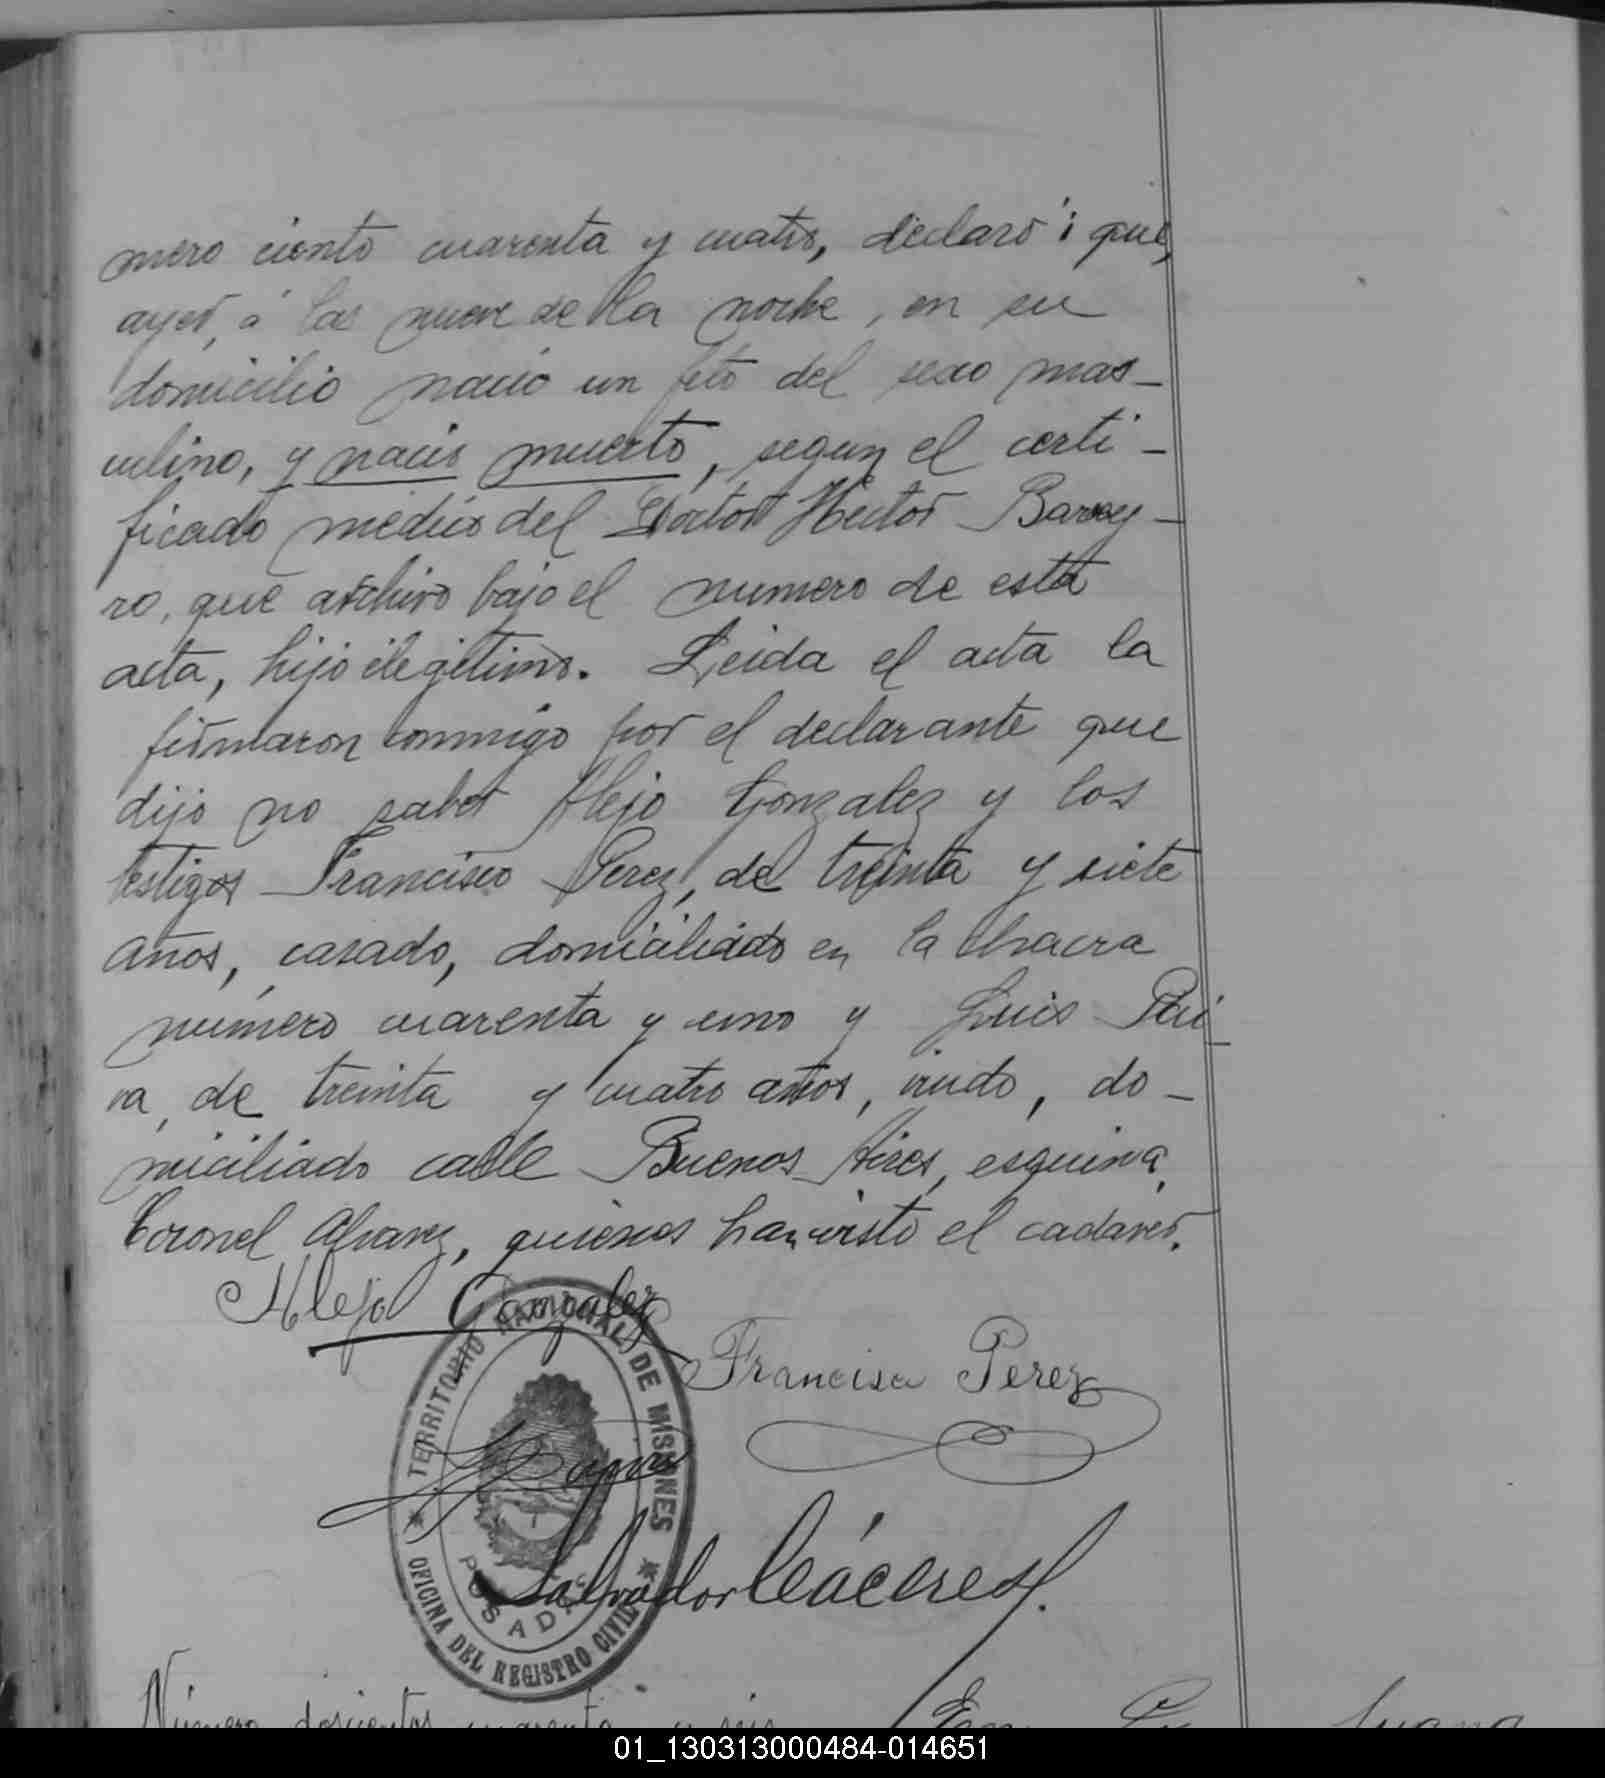 mero ciento cuarenta y cuatro, declaró: que,
ayer, á las nueve de la noche, en su
domicilio nació un feto del sexo mas-
culino, y nació muerto, segun el certi-
ficado médico del Doctor Hector Barrey-
ro, que archivo bajo el numero de esta
acta, hijo ilegítimo. Leida el acta la
firmaron conmigo por el declarante que
dijo no saber Alejo Gonzalez y los
testigos Francisco Perez, de treinta y siete
años, casado, domiciliado en la chacra
número cuarenta y uno y Luis Pai-
va, de treinta y cuatro años, viudo, do-
miciliado calle Buenos Aires, esquina
Coronel Alvarez, quienes han visto el cadaver.
Alejo Gonzalez
Francisco Perez
TERRITORIO NACIONAL DE MISIONES
Salvador Cáceres
POSADAS
OFICINA DEL REGISTRO CIVIL
Número doscientos cuarenta y seis En
01_130313000484-014651